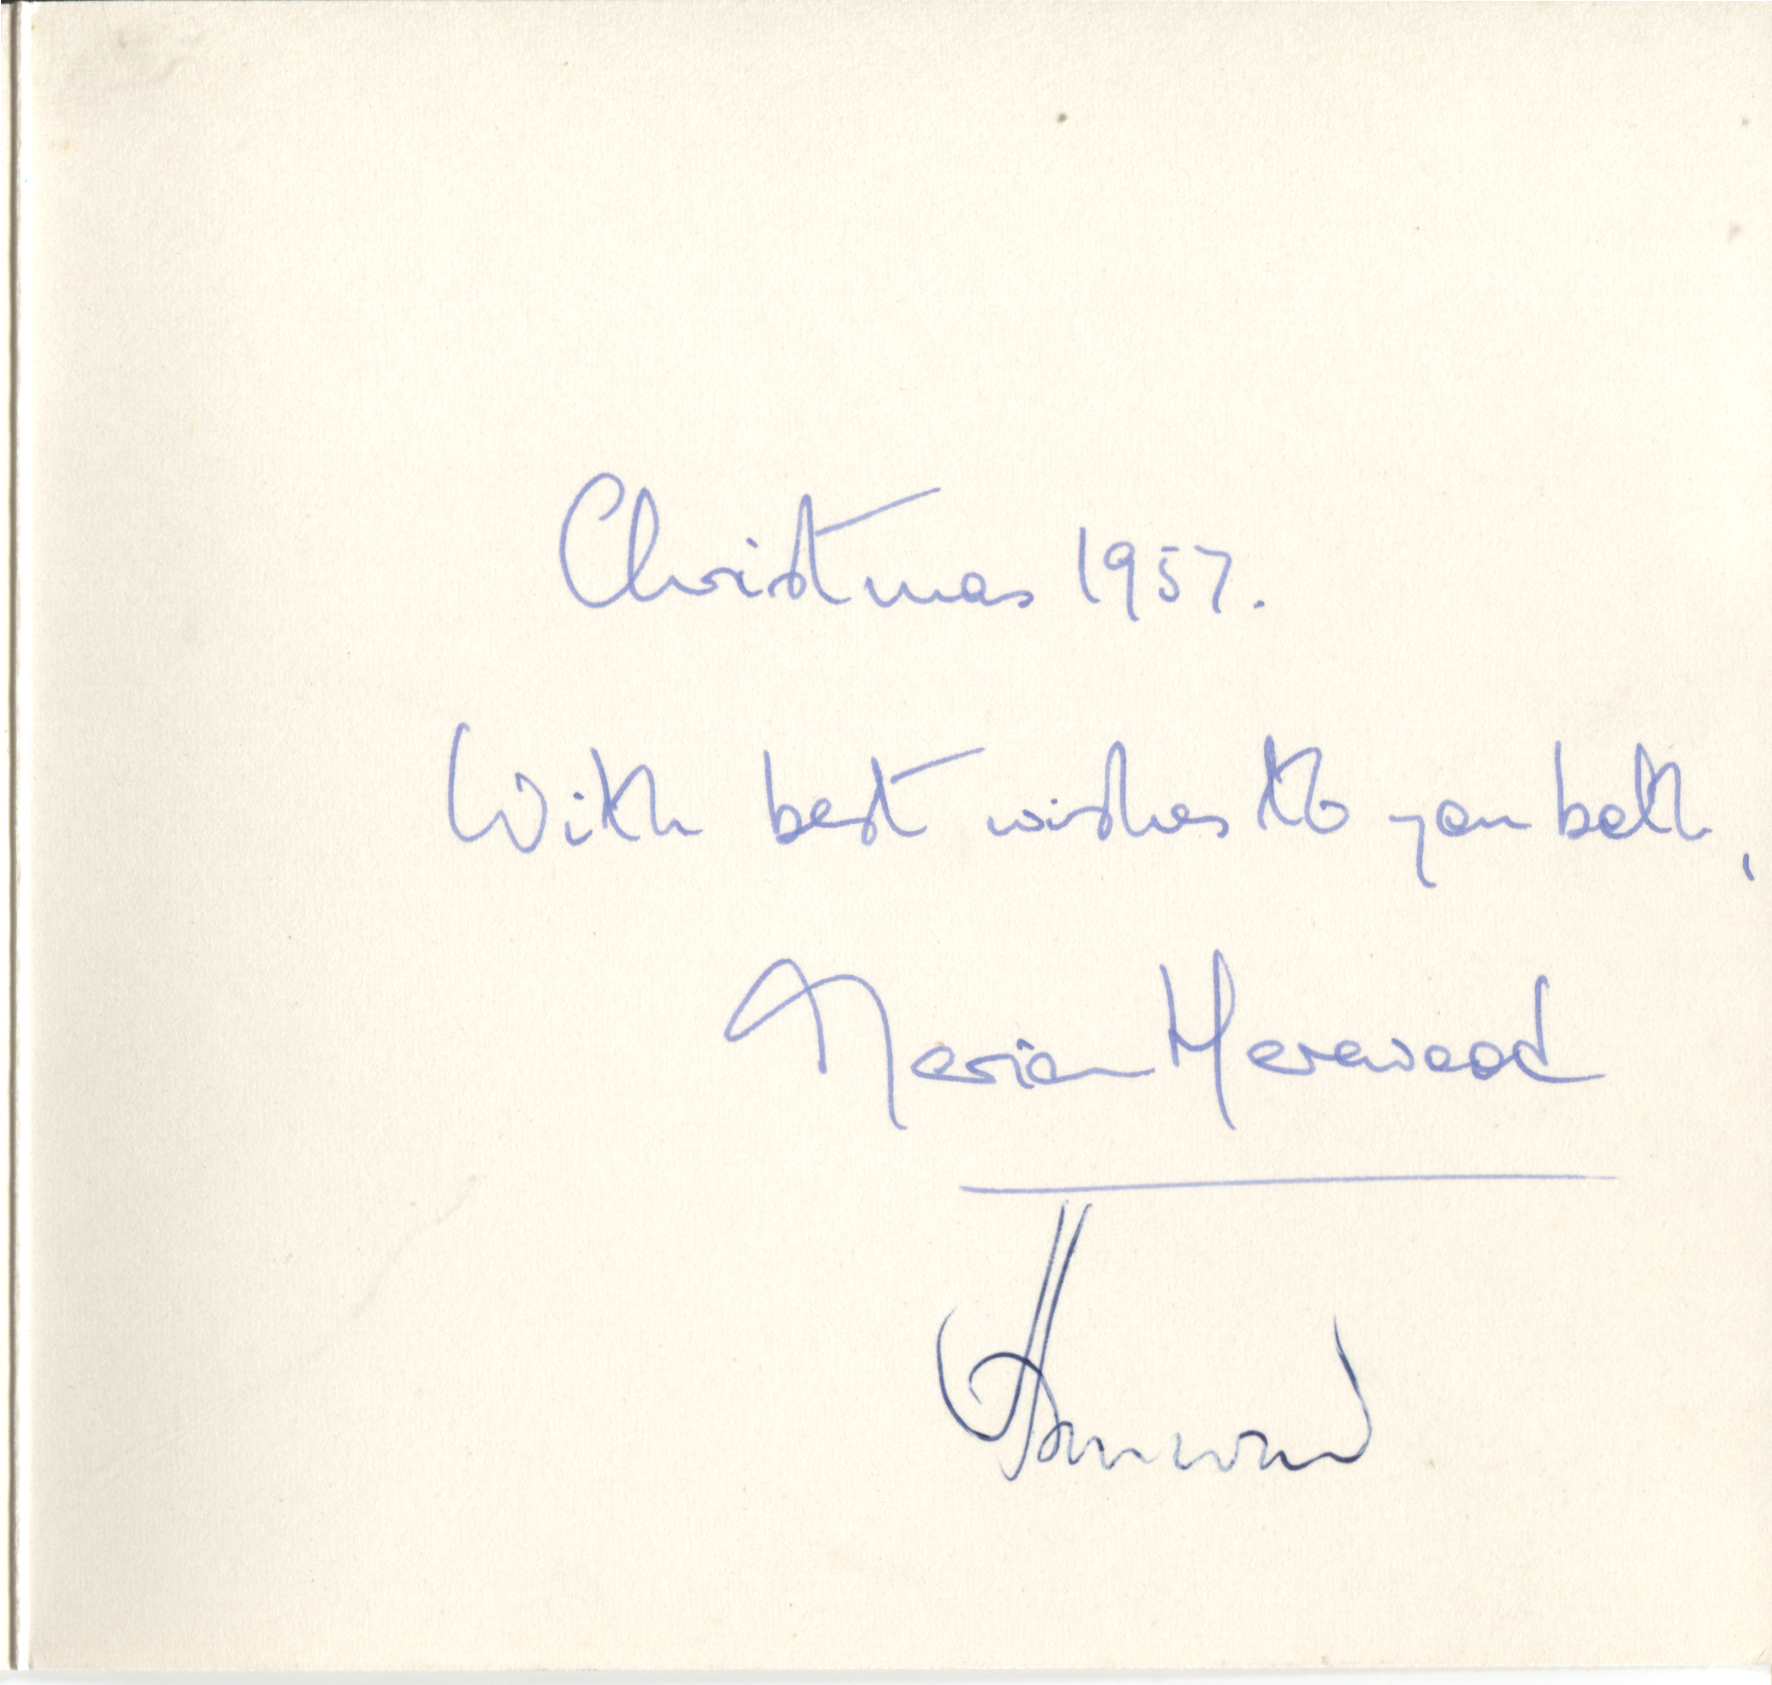 Christmas 1957.
With best wishes to you both,
Marion Harewood
Harewood